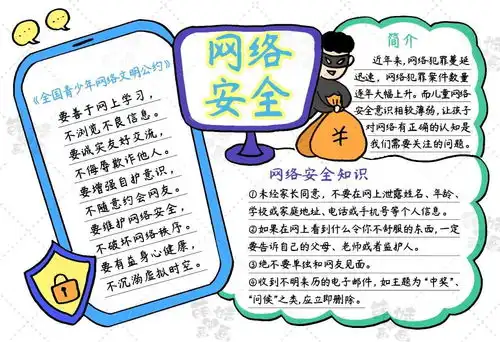 《全国青少年网络文明公约》
要善于网上学习，
不浏览不良信息。
要诚实友好交流，
不侮辱欺诈他人。
要增强自护意识，
不随意约会网友。
要维护网络安全，
不破坏网络秩序。
要有益身心健康，
不沉溺虚拟时空。
网络
安全
简介
近年来，网络犯罪蔓延
迅速，网络犯罪案件数量
逐年大幅上升。而儿童网
络安全意识相较薄弱，让孩子
对网络有正确的认知是
我们需要关注的问题。
¥
网络安全知识
①未经家长同意，不要在网上泄露姓名、年龄、
学校或家庭地址、电话或手机号等个人信息。
②如果在网上看到什么令你不舒服的东西，一定
要告诉自己的父母、老师或者监护人。
③绝不要单独和网友见面。
④收到不明来历的电子邮件，如主题为“中奖”、
“问候”之类，应立即删除。